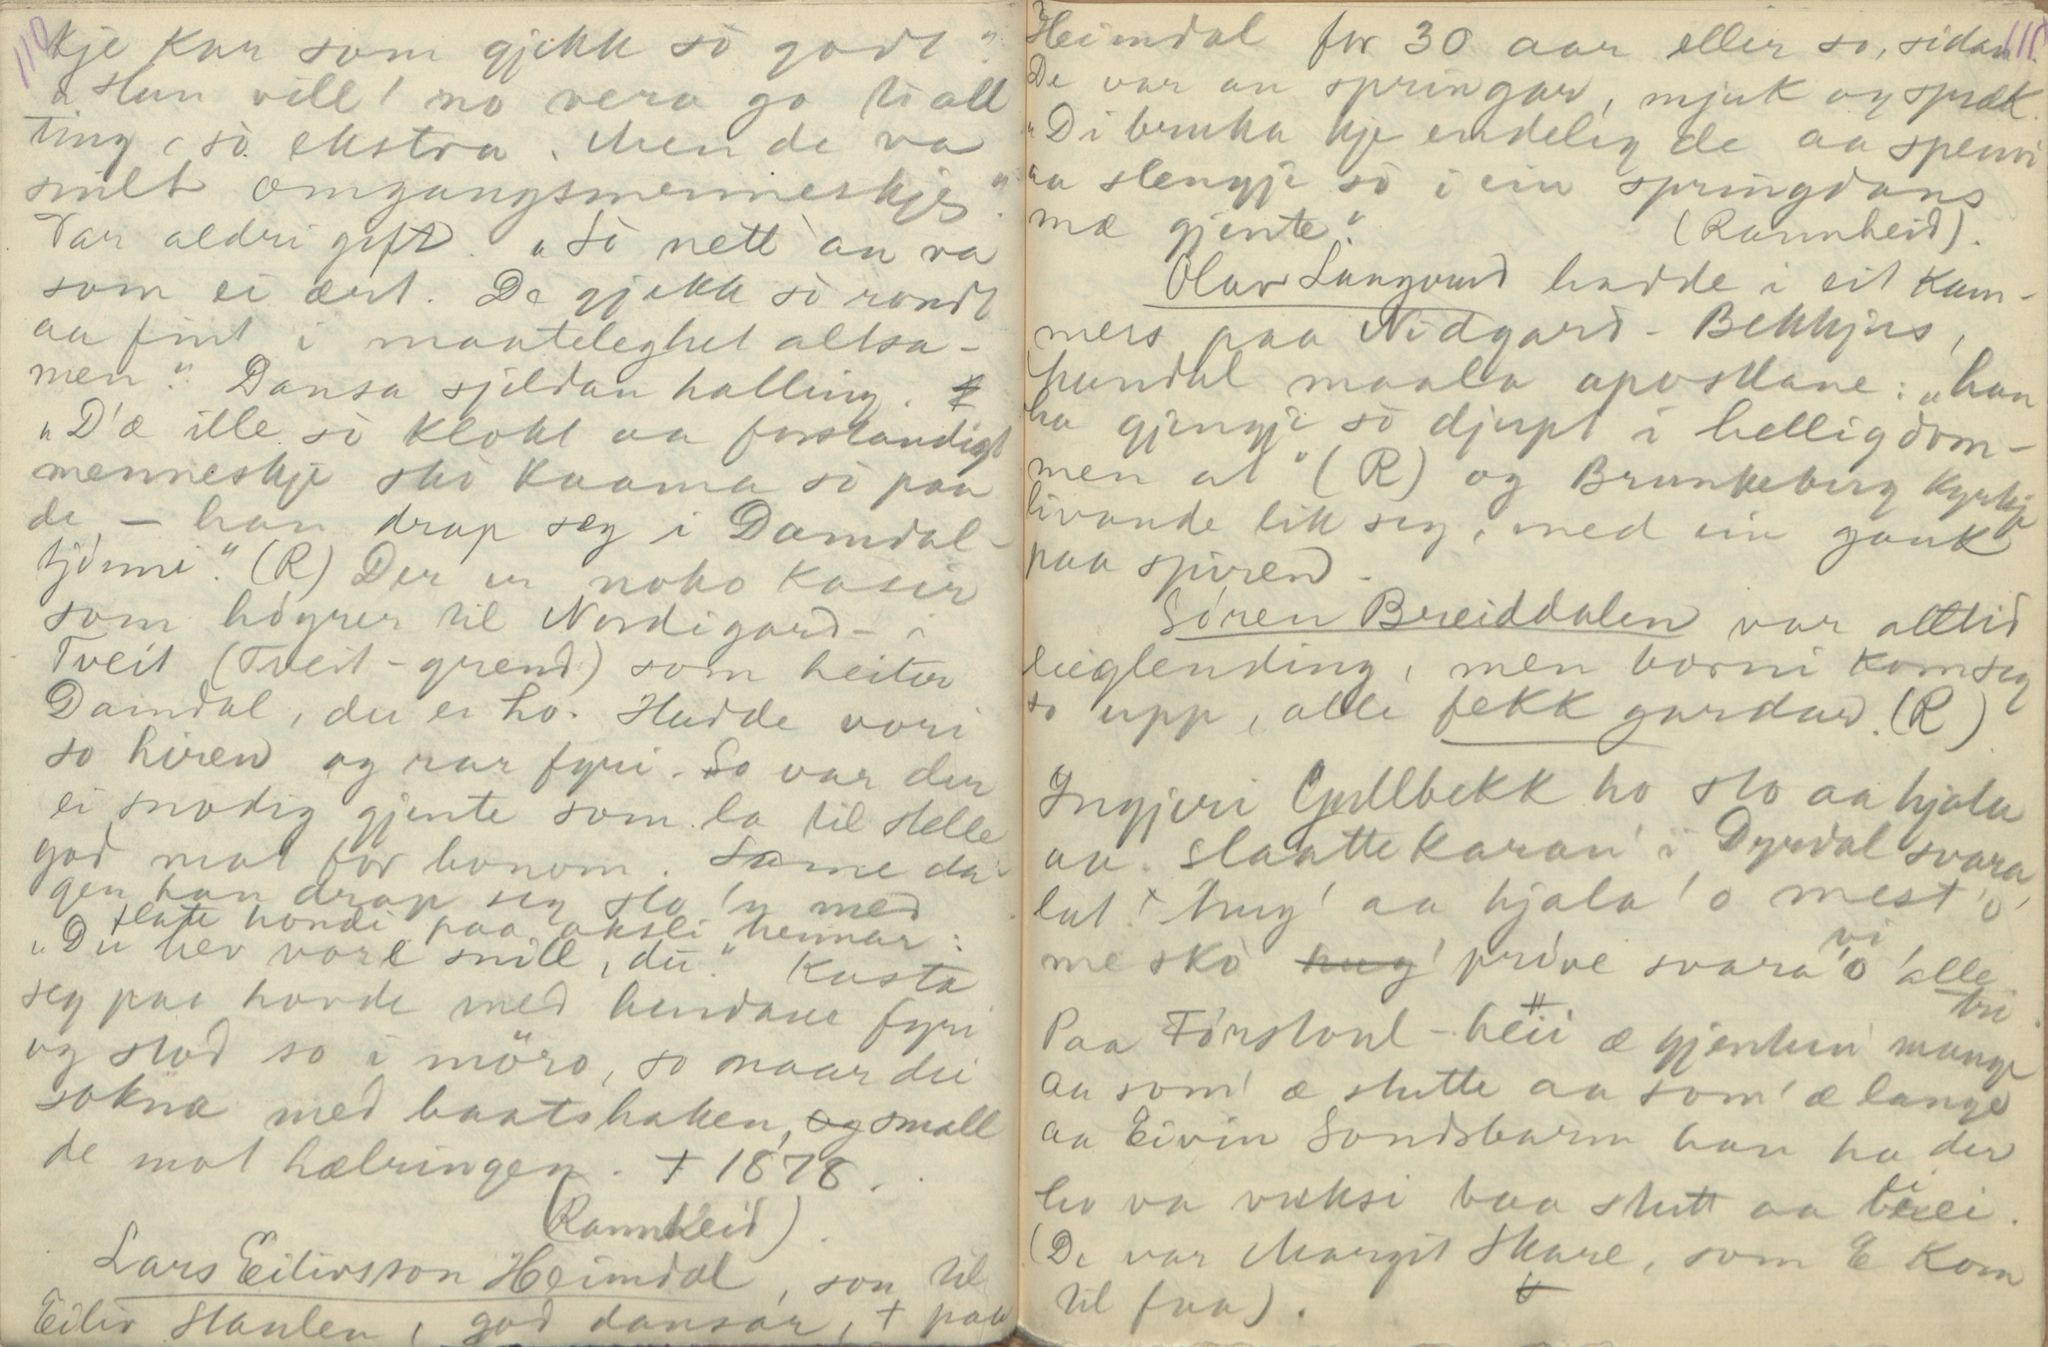 110
kje kar som gjekk sò godt."
"Han vill' no vera go ti all
ting, sò ekstra. Men de va
snilt omgangsmenneskje."
Var aldri gift. "Sò nett an va
som ei ært. De gjekk sò rondt
aa fint i maateleghet altsa-
men." Dansa sjeldan halling.
"D'æ ille sò klokt aa forstandigt
menneskje sko kaama sò paa
de – han drap seg i Damdal-
tjønni." (R) Der er noko kasir
som høyrer til Nordigard- i
Tveit (Tveit-grend) som heiter
Damdal, der ei ho. Hadde vori
so hiren og rar fyri. So var der
ei snodig gjente som la til stelle
god mat for honom. Same da-
gen han drap seg slo 'n med
flate hondi paa aksli hennar:
"Du hev vore snill, du." Kasta
seg paa hovde med hendane fyri
og stod so i møro, so naar dei
sokna med baatshaken, og small
de mot hælringen. + 1878.
(Rannheid).
Lars Eilivsson Heimdal, son til
Eiliv Haulen, god dansar, + paa
111.
Heimdal for 30 aar eller so, sidan
De var an springar, mjuk og spræk.
"Di bruka kje endeleg de aa spenni
aa slengje sò i ein springdans
mæ gjente." (Rannheid).
Olav Langvard hadde i eit kam-
mers paa Nidgard-Bekkjus,
hundal maala apostlane: "han
ha gjengje sò djupt i helligdom-
men at" (R) og Brunkeberg kyrkje
livande lik seg, med ein gauk
paa spiren.
Søren Breiddalen var alltid
leiglending, men borni kom seg
so upp, alle fekk gardar. (R)
Ingjeri Gullbekk ho sto aa hjala
aa slaattekaran' i Dyrdal svara
lat' hug' aa hjala 'o mest 'o'
me sko hug' prøve svara 'o vi alle
tri.
Paa Førstoul-heii æ gjentun' mange
aa som' æ stutte aa som' æ lange
aa Eivin Sondsbarm han ha der
ho va vaksi baa stutt aa brei.
(De var Margit Skare, som E kom
til faa).